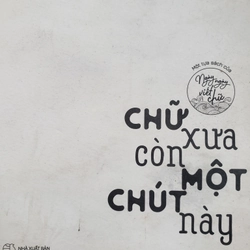 Một tựa sách của
Ngày ngày
viết chữ
CHỮ
xưa
còn
MỘT
CHÚT
này
NHÀ XUẤT BẢN